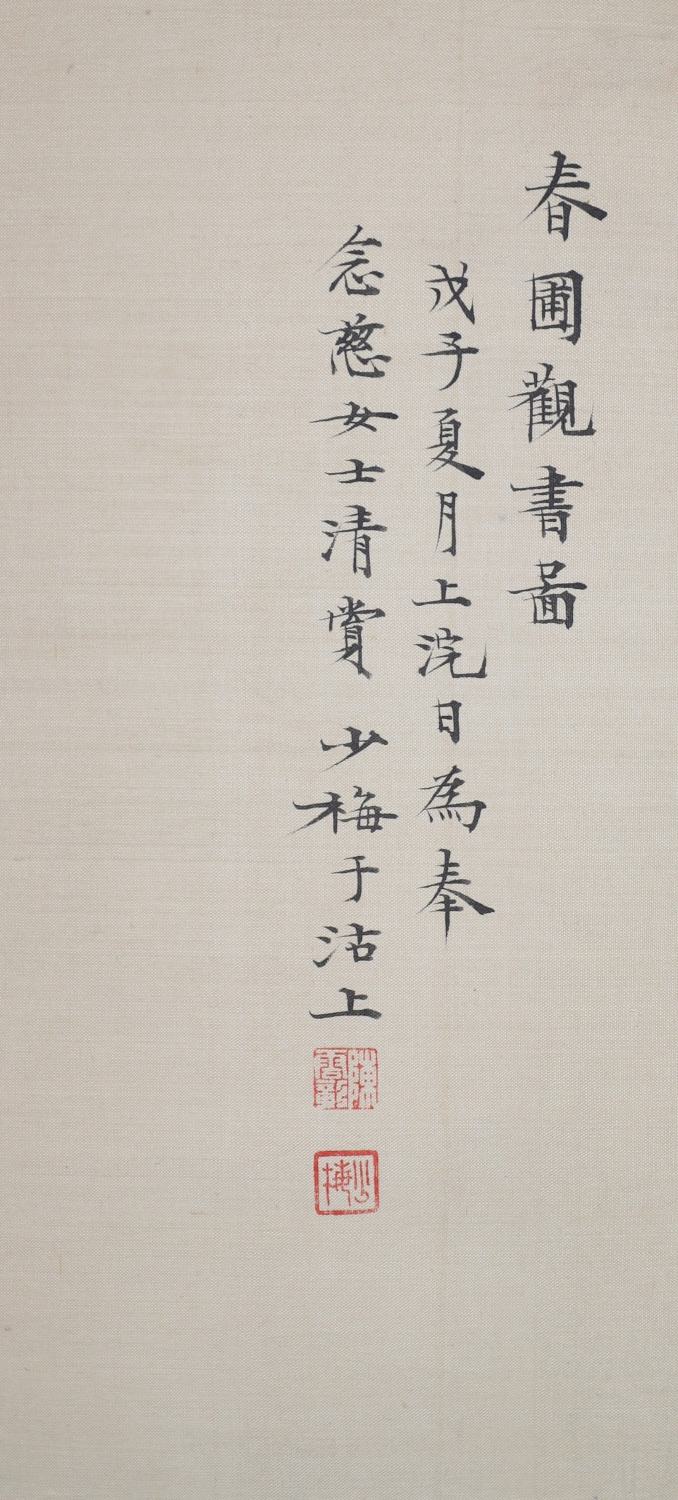 春圃觀書啚
戊子夏月上浣日為奉
念慈女士清賞 少梅于沽上
陳雲彰
少梅